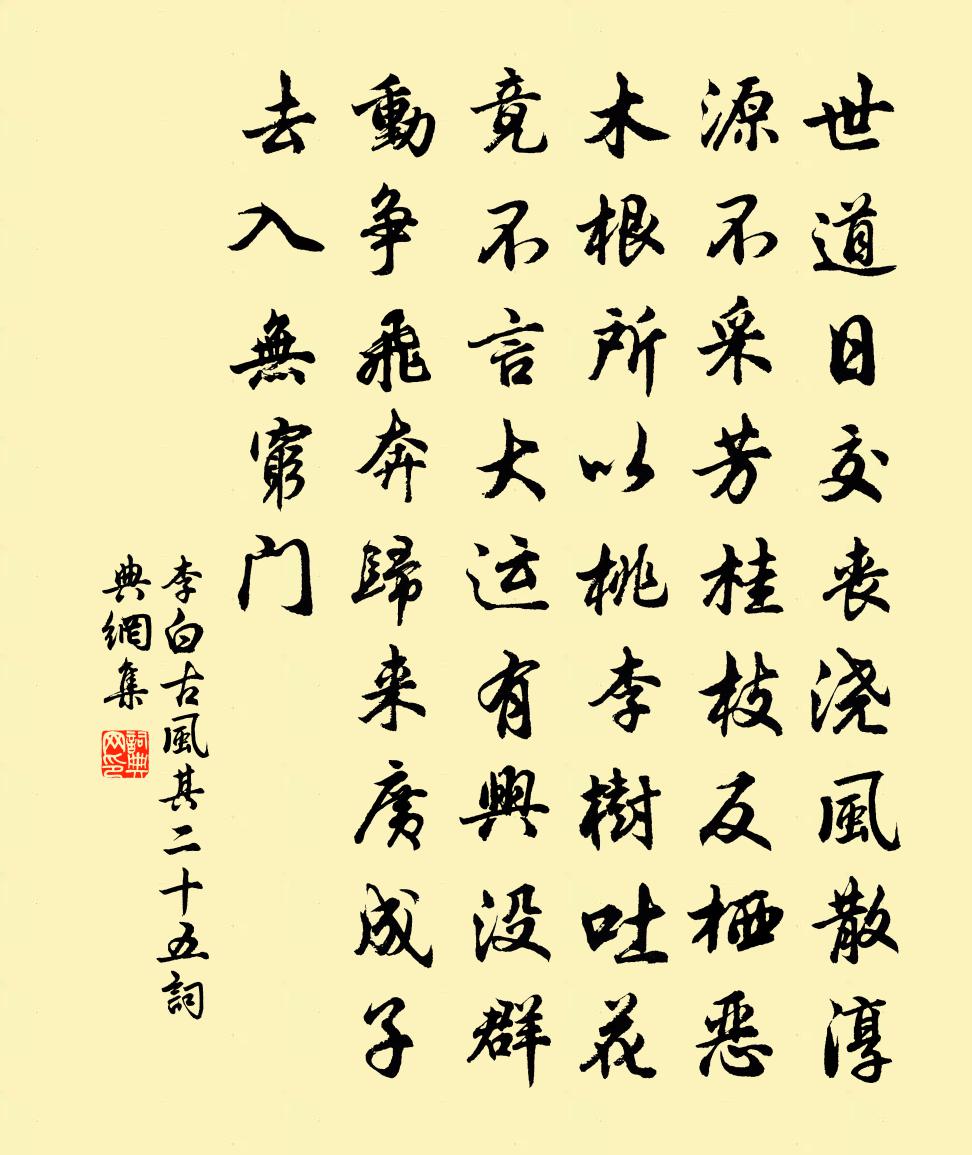 世道日交丧浇風散淳
源不采芳桂枝反栖恶
木根所以桃李樹吐花
竟不言大运有興没群
動争飛奔歸来廣成子
去入無窮门
李白古風其二十五詞
典網集
詞典网印